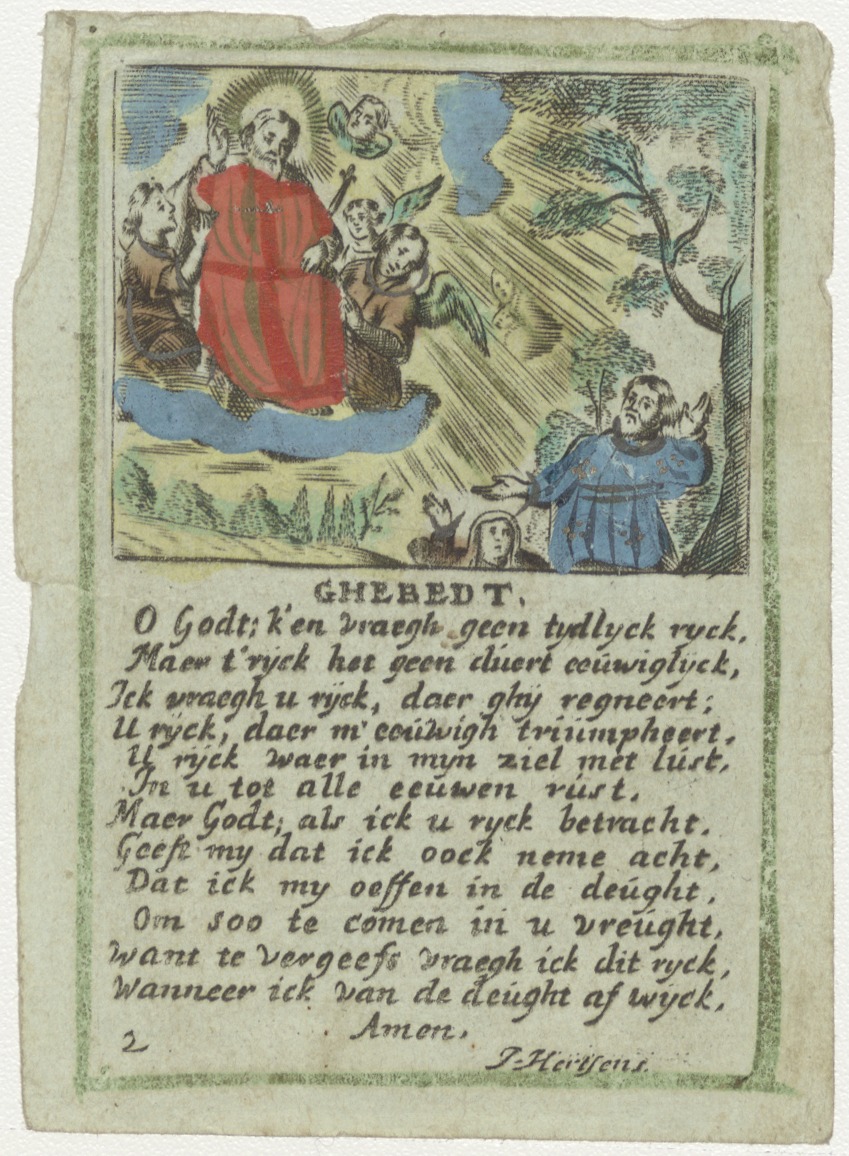 GHEBEDT.
O Godt; k'en vraegh geen tydlyck ryck,
Maer t'ryck het geen duert eeuwiglyck,
Ick vraegh u ryck, daer ghy regneert;
U ryck, daer m'eeuwigh triumpheert.
U ryck waer in myn ziel met lust,
In u tot alle eeuwen rust.
Maer Godt; als ick u ryck betracht.
Geeft my dat ick oock neme acht,
Dat ick my oeffen in de deught,
Om soo te comen in u vreught,
Want te vergeefs vraegh ick dit ryck,
Wanneer ick van de deught af wyck,
Amen.
2